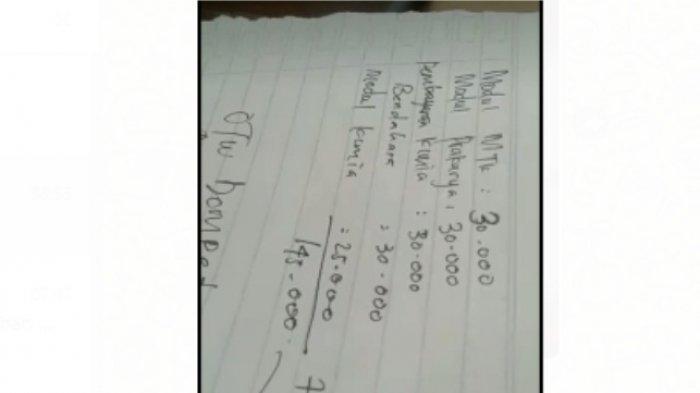 Modul MTK : 30.000
Modul Prakarya : 30.000
Pembayaran Kimia : 30.000
Bendahara = 30.000
Modul Kimia = 25.000
145.000.
OTW DOMPET